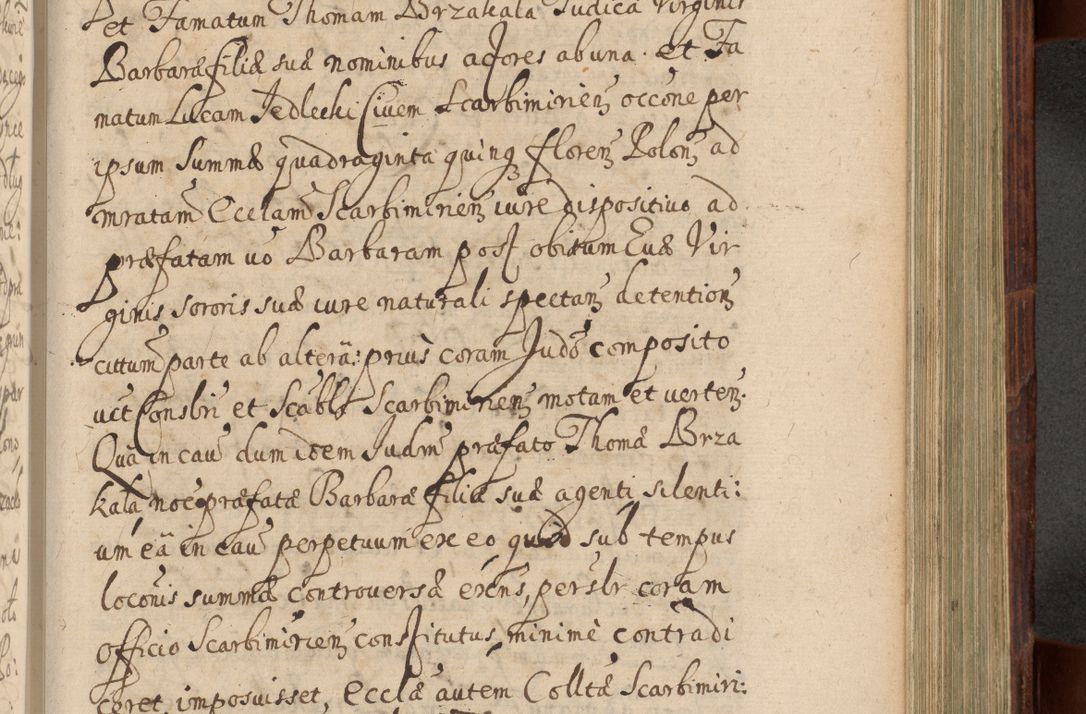 et Famatum Thomam Brzakala Judica Virginis
Barbaræ filiæ suæ nominibus actores ab una. et Fa
matum Lucam Jedlecki Civem Scarbimirien occõne per
ipsum Summæ quadraginta quinq floren Polon ad
mratam Ecclam Scarbimirien iure dispositivo ad
præfatam vo Barbaram post obitum Evæ Vir
ginis sororis suæ iure naturali spectan detention
cittum parte ab alterã: prius coram Judõ composito
uct Consbri et Scabb Scarbimirien motam et verten.
Quã in cau dum idem Judm præfato Thomæ Brza
kala noẽ præfatæ Barbaræ filiæ suæ agenti silenti:
um eã in cau perpetuum ex eo quod sub tempus
locõnis summæ controversæ exẽns, perslr coram
officio Scarbimirien constitutus, minimè contradi
ceret, imposuisset, Ecclæ autem Colltæ Scarbimiri: